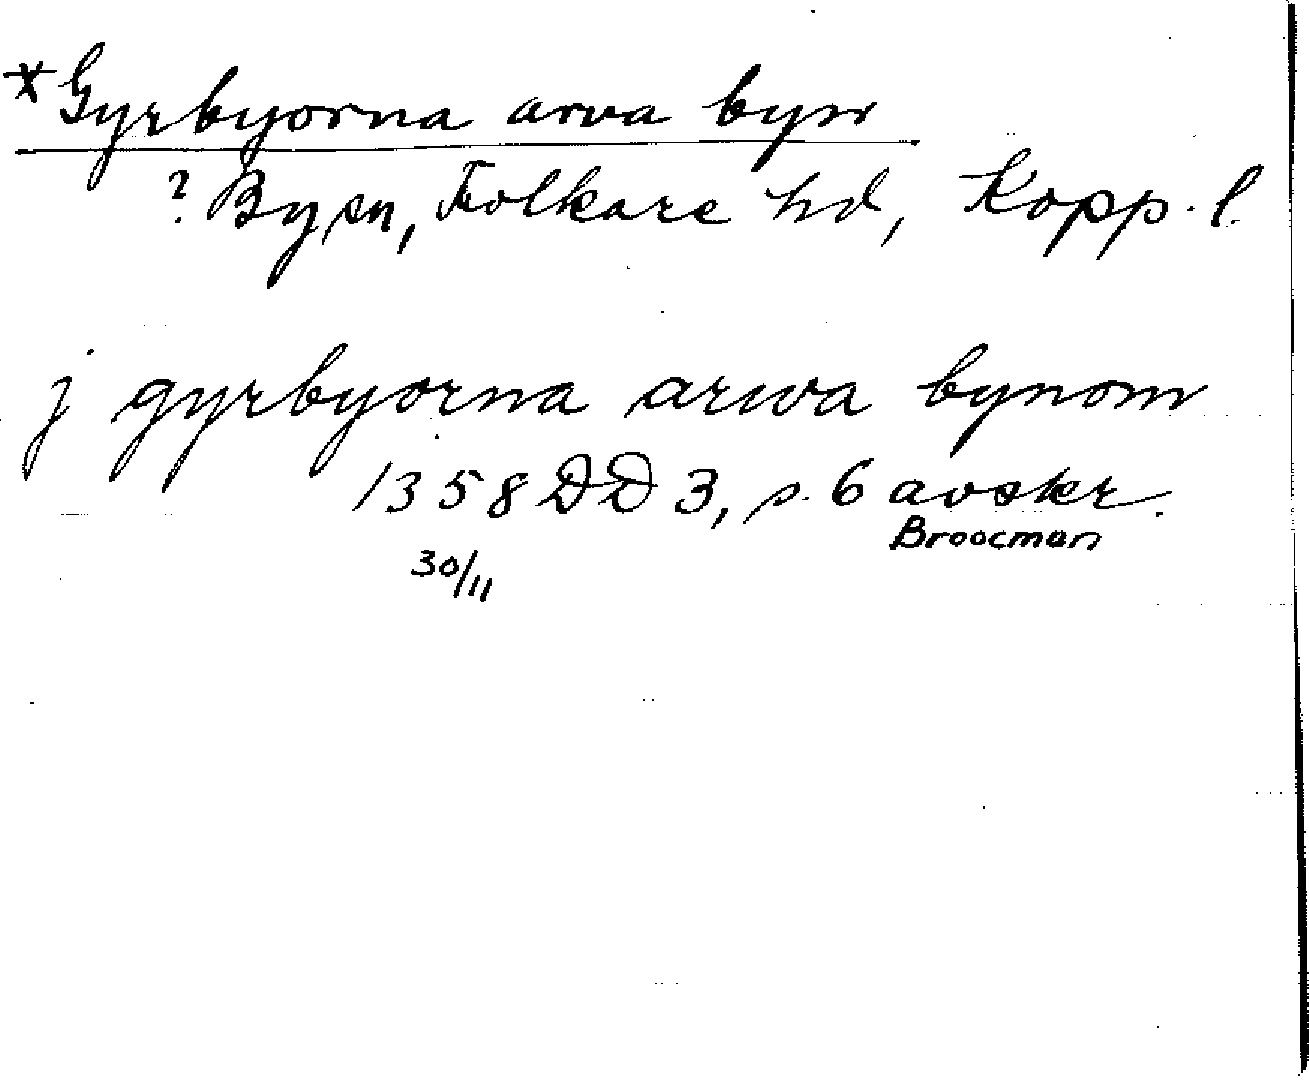 *Gyrbyorna arva byn
? By sn, Folkare hd, Kopp. l.
j gyrbyorna arwa bynom
1358 DD 3, s. 6 avskr.
Broocman
30/11